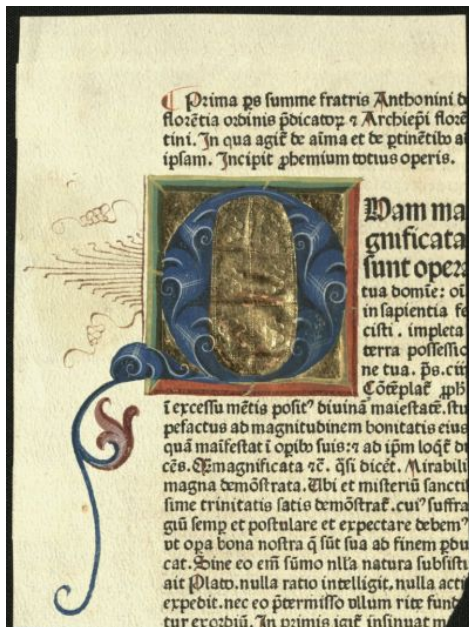 Prima ps summe fratris Anthonini d
florētia ordinis p̄dicatoꝝ ⁊ Archiep̄i florē
tini. In qua agit̄ de aīma et de ꝑtinētib̄ a
ipsam. Incipit ꝓhemium totius operis.
Quam ma
gnificata
sunt opera
tua domīe: oī
in sapientia fe
cisti. impleta
terra possessio
ne tua. p̄s. ciii
Cōtēplat̄ ꝓph
ī excessu mētis positꝰ diuinā maiestatē. stu
pefactus ab magnitudinem bonitatis eius
quā maīfestat ī opib̄ suis: ⁊ ad ip̄m loqt̄ di
cēs. Qmagnificata ⁊c̄. q̄si dicēt. Mirabili
magna demōstrata. Ubi et misteriū sancti
sime trinitatis satis demōstrat̄. cuiꝰ suffra
giū semꝑ et postulare et expectare debemꝰ
vt oꝑa bona nostra q̄ sūt sua ad finem ꝑdu
cat. Sine eo em̄ sūmo nll̄a natura subsistit
ait Plato. nulla ratio intelligit. nulla acti
expedit. nec eo p̄termisso vllum rite fund
tur exordiū. In primis igit̄ insinuat m